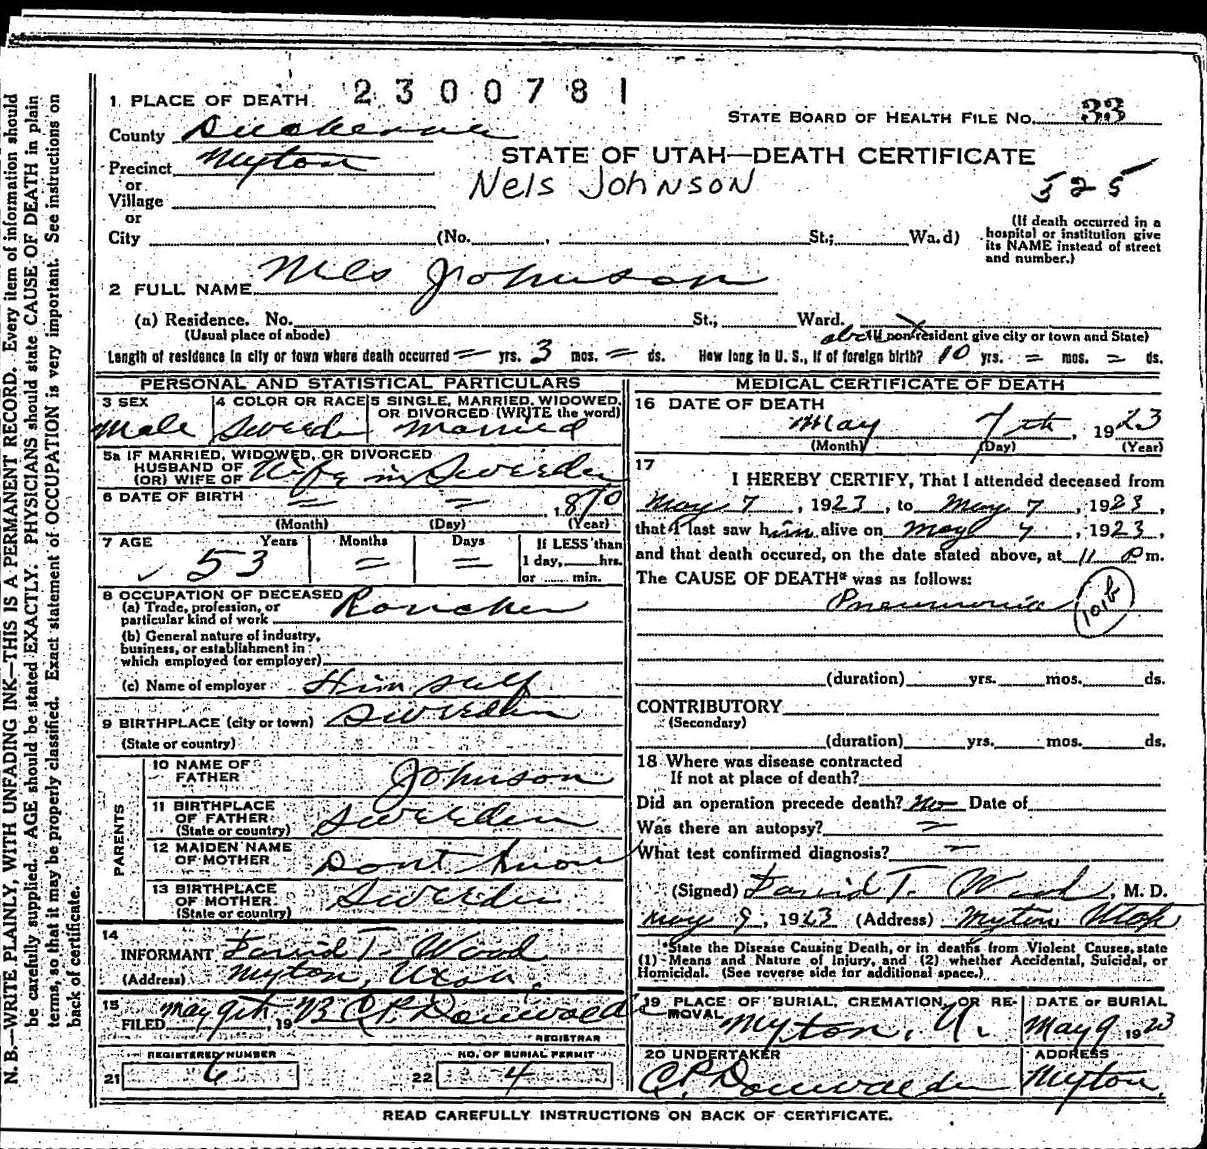 N. B.—WRITE PLAINLY, WITH UNFADING INK—THIS IS A PERMANENT RECORD. Every item of information should
be carefully supplied. AGE should be stated EXACTLY. PHYSICIANS should state CAUSE OF DEATH in plain
terms, so that it may be properly classified. Exact statement of OCCUPATION is very important. See instructions on
back of certificate.
1 PLACE OF DEATH 2300781
STATE BOARD OF HEALTH FILE No. 33
County Duchesne
STATE OF UTAH—DEATH CERTIFICATE
Precinct Myton
Nels Johnson 525
or
Village
or
City (No. , St.; Wa.d)
(If death occurred in a
hospital or institution give
its NAME instead of street
and number.)
2 FULL NAME Nels Johnson
(a) Residence. No. St., Ward.
(Usual place of abode) (If nonresident give city or town and State)
Length of residence in city or town where death occurred = yrs. 3 mos. = ds. How long in U. S., if of foreign birth? 10 yrs. = mos. = ds.
PERSONAL AND STATISTICAL PARTICULARS
3 SEX 4 COLOR OR RACE 5 SINGLE, MARRIED, WIDOWED,
OR DIVORCED (WRITE the word)
Male Swede Married
5a IF MARRIED, WIDOWED, OR DIVORCED
HUSBAND OF
(OR) WIFE OF Wife in Sweeden
6 DATE OF BIRTH = = 1870
(Month) (Day) (Year)
7 AGE Years Months Days If LESS than
✓ 53 = = 1 day, hrs.
or min.
8 OCCUPATION OF DECEASED
(a) Trade, profession, or
particular kind of work Rancher
(b) General nature of industry,
business, or establishment in
which employed (or employer)
(c) Name of employer Himself
9 BIRTHPLACE (city or town) Sweeden
(State or country)
PARENTS
10 NAME OF
FATHER Johnson
11 BIRTHPLACE
OF FATHER
(State or country) Sweeden
12 MAIDEN NAME
OF MOTHER Dont Know
13 BIRTHPLACE
OF MOTHER
(State or country) Sweden
14
INFORMANT David T. Wood
(Address) Myton, Utah.
15
FILED May 9th 1923 C. P.
REGISTRAR
REGISTERED NUMBER NO. OF BURIAL PERMIT
21 6 22 4
MEDICAL CERTIFICATE OF DEATH
16 DATE OF DEATH
May 7th, 1923
(Month) (Day) (Year)
17
I HEREBY CERTIFY, That I attended deceased from
May 7, 1923, to May 7, 1923,
that I last saw him alive on May 7, 1923,
and that death occured, on the date stated above, at 11 P m.
The CAUSE OF DEATH* was as follows:
Pneumonia 101b
(duration) yrs. mos. ds.
CONTRIBUTORY
(Secondary)
(duration) yrs. mos. ds.
18 Where was disease contracted
If not at place of death?
Did an operation precede death? No Date of
Was there an autopsy? =
What test confirmed diagnosis?
(Signed) David T. Wood, M. D.
May 9, 1923 (Address) Myton Utah
*State the Disease Causing Death, or in deaths from Violent Causes, state
(1) Means and Nature of Injury, and (2) whether Accidental, Suicidal, or
Homicidal. (See reverse side for additional space.)
19 PLACE OF BURIAL, CREMATION, OR RE-
MOVAL Myton, U.
DATE OF BURIAL
May 9 1923
20 UNDERTAKER ADDRESS
C. P. Myton.
READ CAREFULLY INSTRUCTIONS ON BACK OF CERTIFICATE.